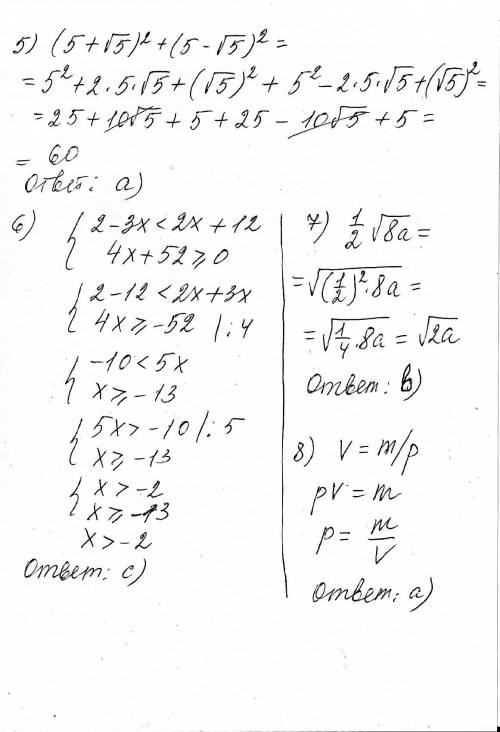 5) (5+√5)² + (5-√5)² =
= 5² + 2·5·√5 + (√5)² + 5² - 2·5·√5 + (√5)² =
= 25 + 10√5 + 5 + 25 - 10√5 + 5 =
= 60
Ответ: а)
6) { 2-3x < 2x + 12
4x + 52 ⩾ 0
{ 2-12 < 2x + 3x
4x ⩾ -52 |:4
{ -10 < 5x
x ⩾ -13
{ 5x > -10 |:5
x ⩾ -13
{ x > -2
x ⩾ -13
x > -2
Ответ: с)
7) 1/2 √8a =
= √(1/2)²·8a =
= √1/4·8a = √2a
Ответ: в)
8) V = m/p
pV = m
p = m/V
Ответ: а)